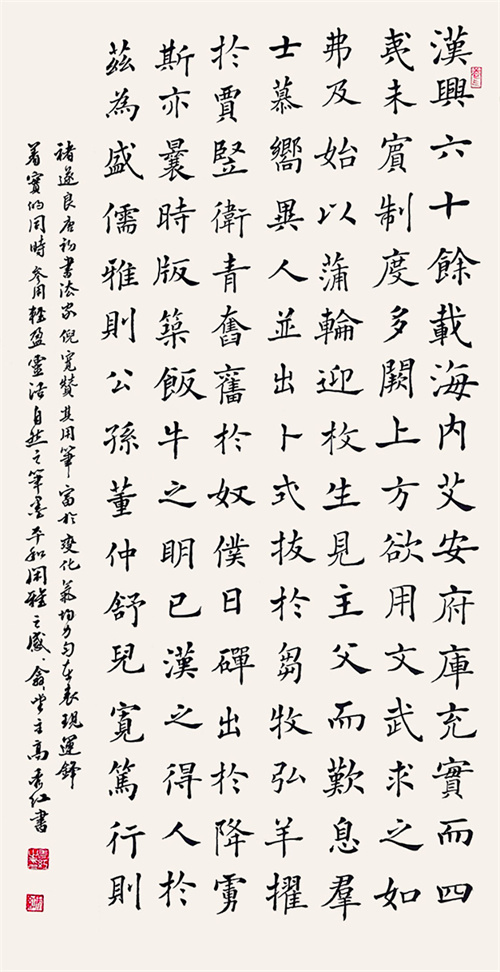 漢興六十餘載海内艾安府庫充實而四
夷未賓制度多闕上方欲用文武求之如
弗及始以蒲輪迎枚生見主父而歎息羣
士慕嚮異人並出卜式拔於芻牧弘羊擢
於賈豎衛青奮舊於奴僕日磾出於降虜
斯亦曩時版築飯牛之明已漢之得人於
茲為盛儒雅則公孫董仲舒兒寬篤行則
褚遂良唐初書法家倪寬贊其用筆富於變化氣均力勻在表現運鋒
着實的同時參用輕盈靈活自然之筆墨平和閑雅之感堂主高秀红書